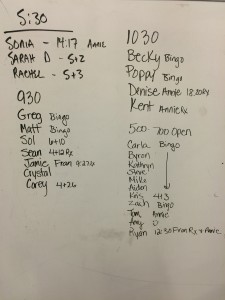 5:30
SONIA - 14:17 Annie
SARAH D - 5+2
RACHEL - 5+3
930
Greg Bingo
Matt Bingo
Sol 6+10
Sean 4+12 Rx
Jamie From
Crystal
Corey 4+26
1030
Becky Bingo
Poppy Bingo
Denise Annie 18:20 Rx
Kent Annie Rx
500-700 Open
Carla Bingo
Byron
Kathryn
Steve
Mike
Aidan
Kris 4+3
Zach Bingo
Tom Annie
Amy
Ryan 12:30 Fran Rx + Annie